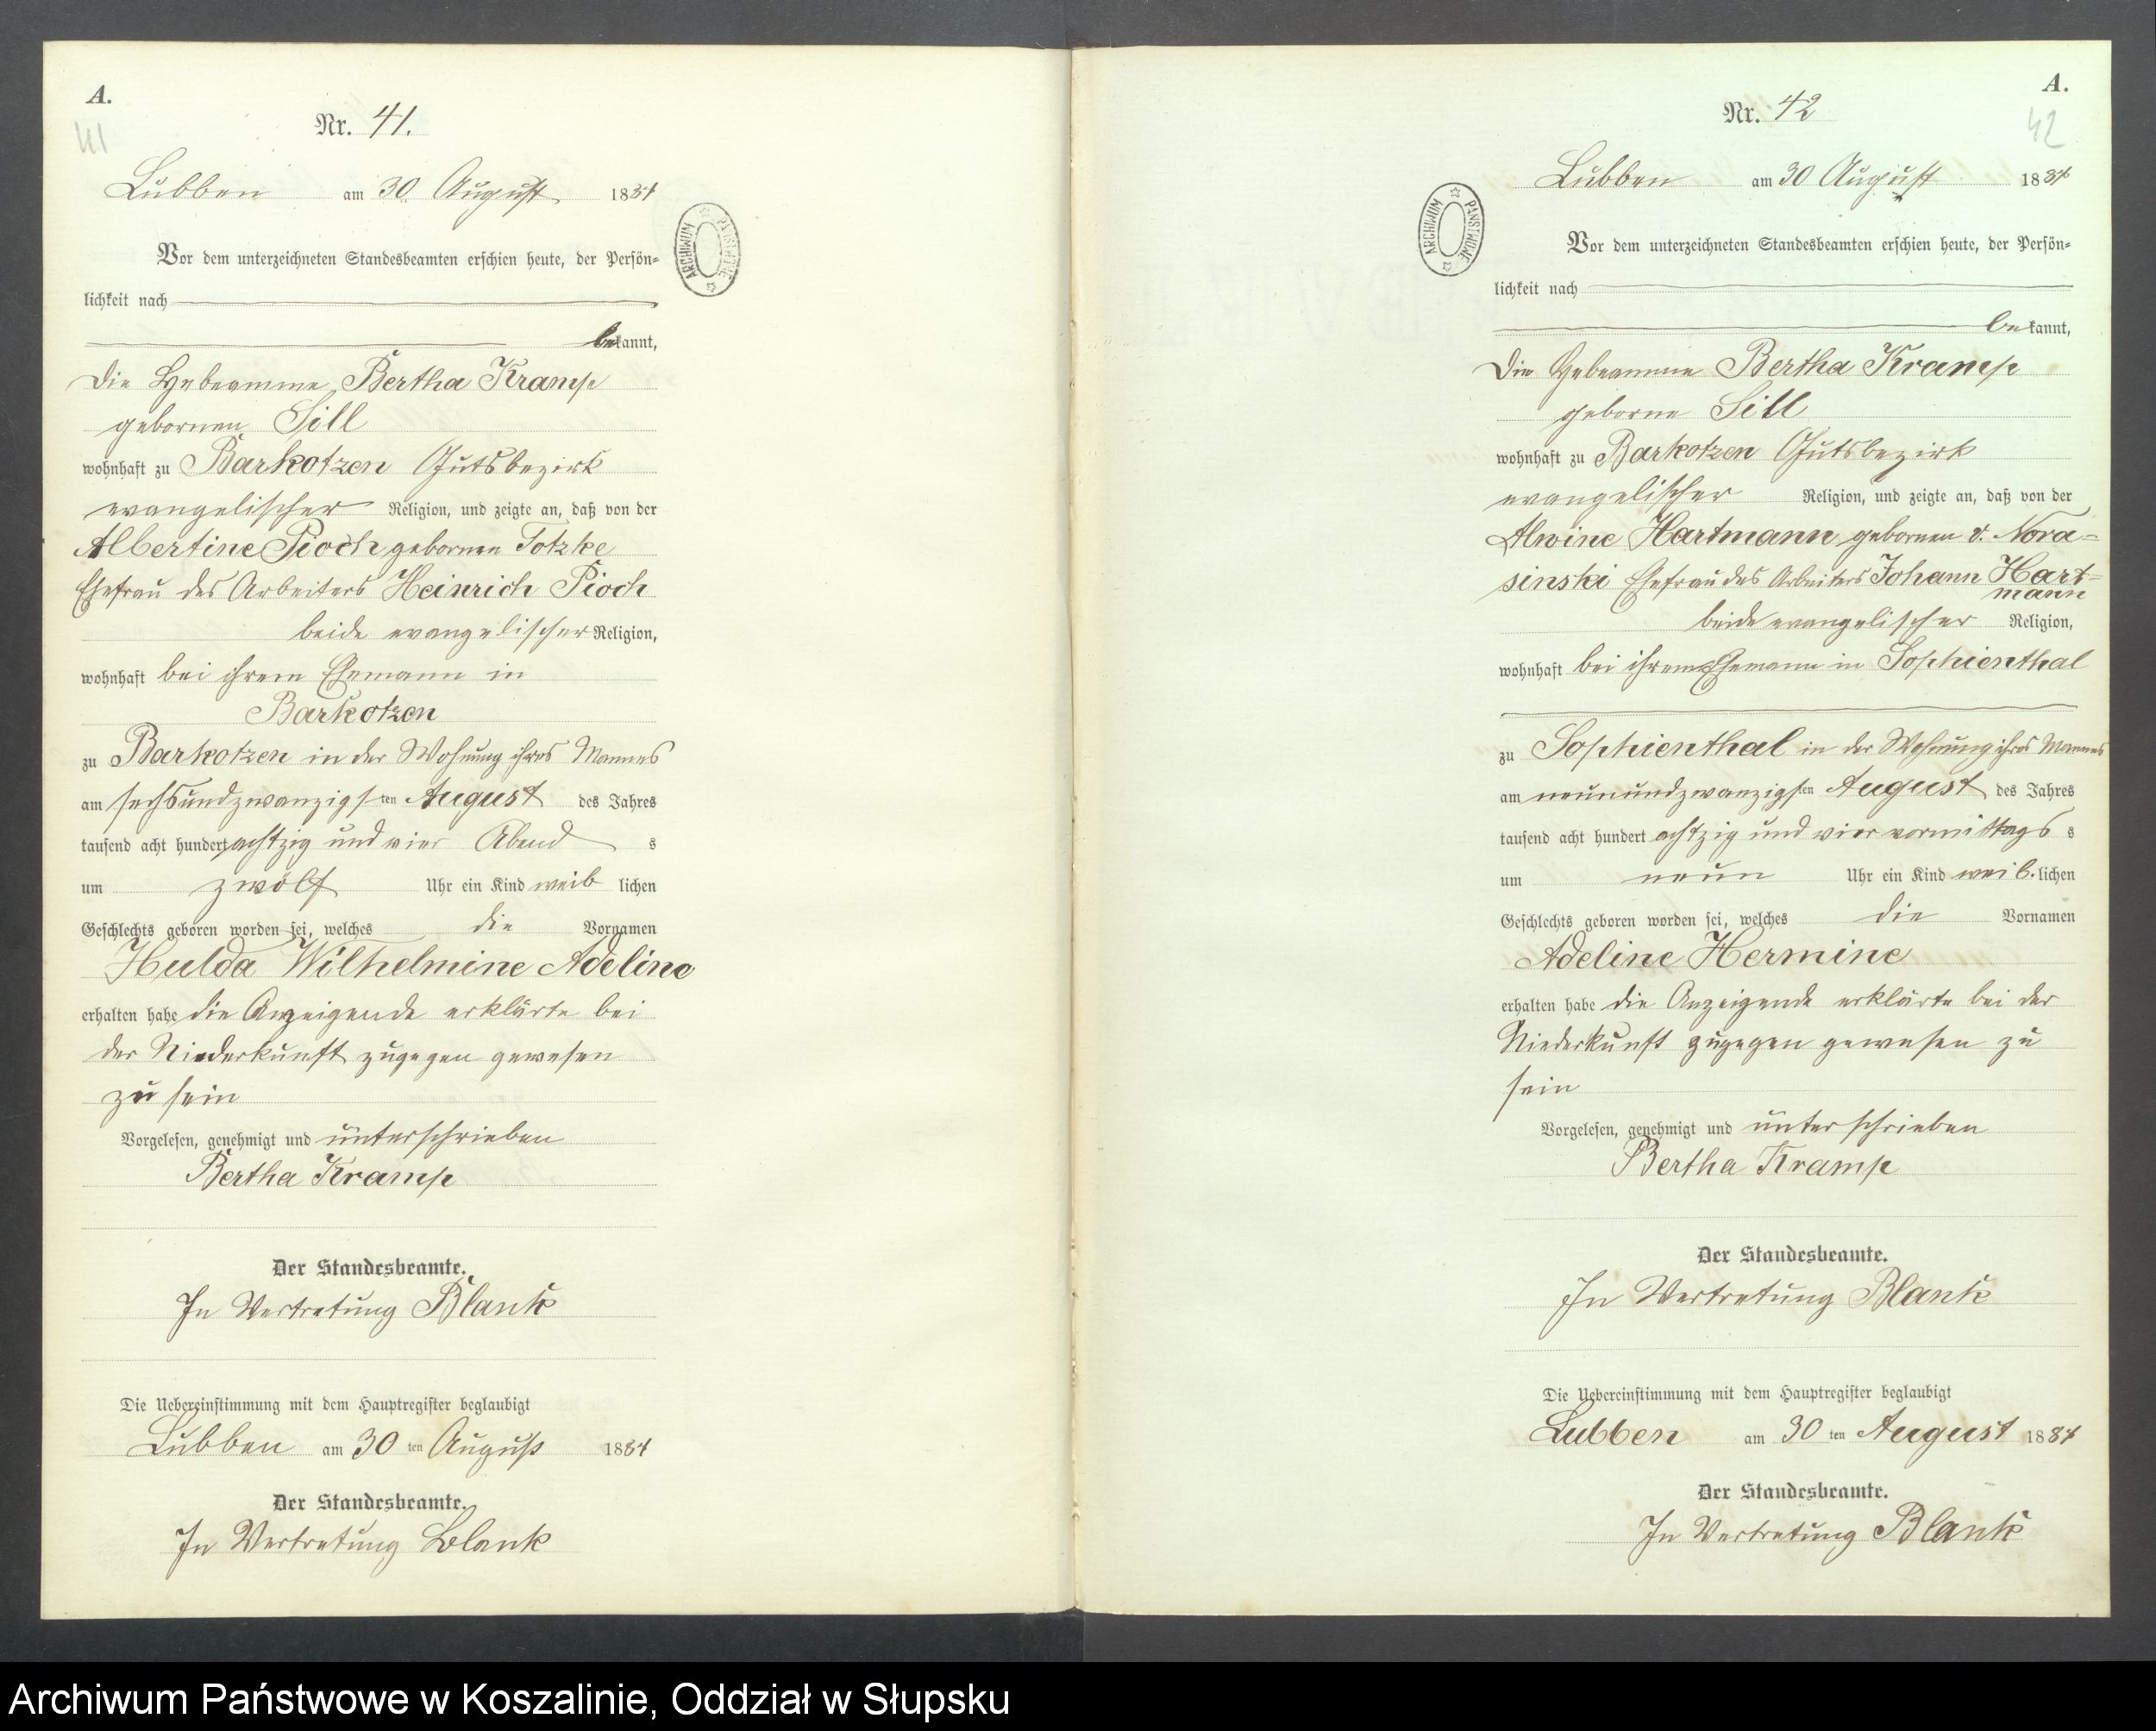 A.
41
Nr. 41.
Lübben am 30. August 1884
Vor dem unterzeichneten Standesbeamten erschien heute, der Persön-
lichkeit nach
bekannt,
Die Hebeamme Bertha Kramp
gebornen Sill
wohnhaft zu Barkotzen Gutsbezirk
evangelischer Religion, und zeigte an, daß von der
Albertine Pioch gebornen Totzke
Ehefrau des Arbeiters Heinrich Pioch
beide evangelischer Religion,
wohnhaft bei ihrem Ehemann in
Barkotzen
zu Barkotzen in der Wohnung ihres Mannes
am sechsundzwanzigsten August des Jahres
tausend acht hundert achtzig und vier Abend s
um zwölf Uhr ein Kind weib lichen
Geschlechts geboren worden sei, welches die Vornamen
Hulda Wilhelmine Adeline
erhalten habe die Anzeigende erklärte bei
der Niederkunft zugegen gewesen
zu sein
Vorgelesen, genehmigt und unterschrieben
Bertha Kramp
Der Standesbeamte.
In Vertretung Blank
Die Uebereinstimmung mit dem Hauptregister beglaubigt
Lübben am 30 ten August 1884
Der Standesbeamte.
In Vertretung Blank
ARCHIWUM PAŃSTWOWE
A.
42
Nr. 42
Lübben am 30 August 1884
Vor dem unterzeichneten Standesbeamten erschien heute, der Persön-
lichkeit nach
bekannt,
Die Hebeamme Bertha Kramp
geborne Sill
wohnhaft zu Barkotzen Gutsbezirk
evangelischer Religion, und zeigte an, daß von der
Alwine Hartmann gebornen v. Nora-
sinski Ehefrau des Arbeiters Johann Hart-
mann
beide evangelischer Religion,
wohnhaft bei ihrem Ehemann in Sophienthal
zu Sophienthal in der Wohnung ihres Mannes
am neunundzwanzigsten August des Jahres
tausend acht hundert achtzig und vier vormittags s
um neun Uhr ein Kind weib. lichen
Geschlechts geboren worden sei, welches die Vornamen
Adeline Hermine
erhalten habe die Anzeigende erklärte bei der
Niederkunft zugegen gewesen zu
sein
Vorgelesen, genehmigt und unterschrieben
Bertha Kramp
Der Standesbeamte.
In Vertretung Blank
Die Uebereinstimmung mit dem Hauptregister beglaubigt
Lubben am 30 ten August 1884
Der Standesbeamte.
In Vertretung Blank
ARCHIWUM PAŃSTWOWE
Archiwum Państwowe w Koszalinie, Oddział w Słupsku